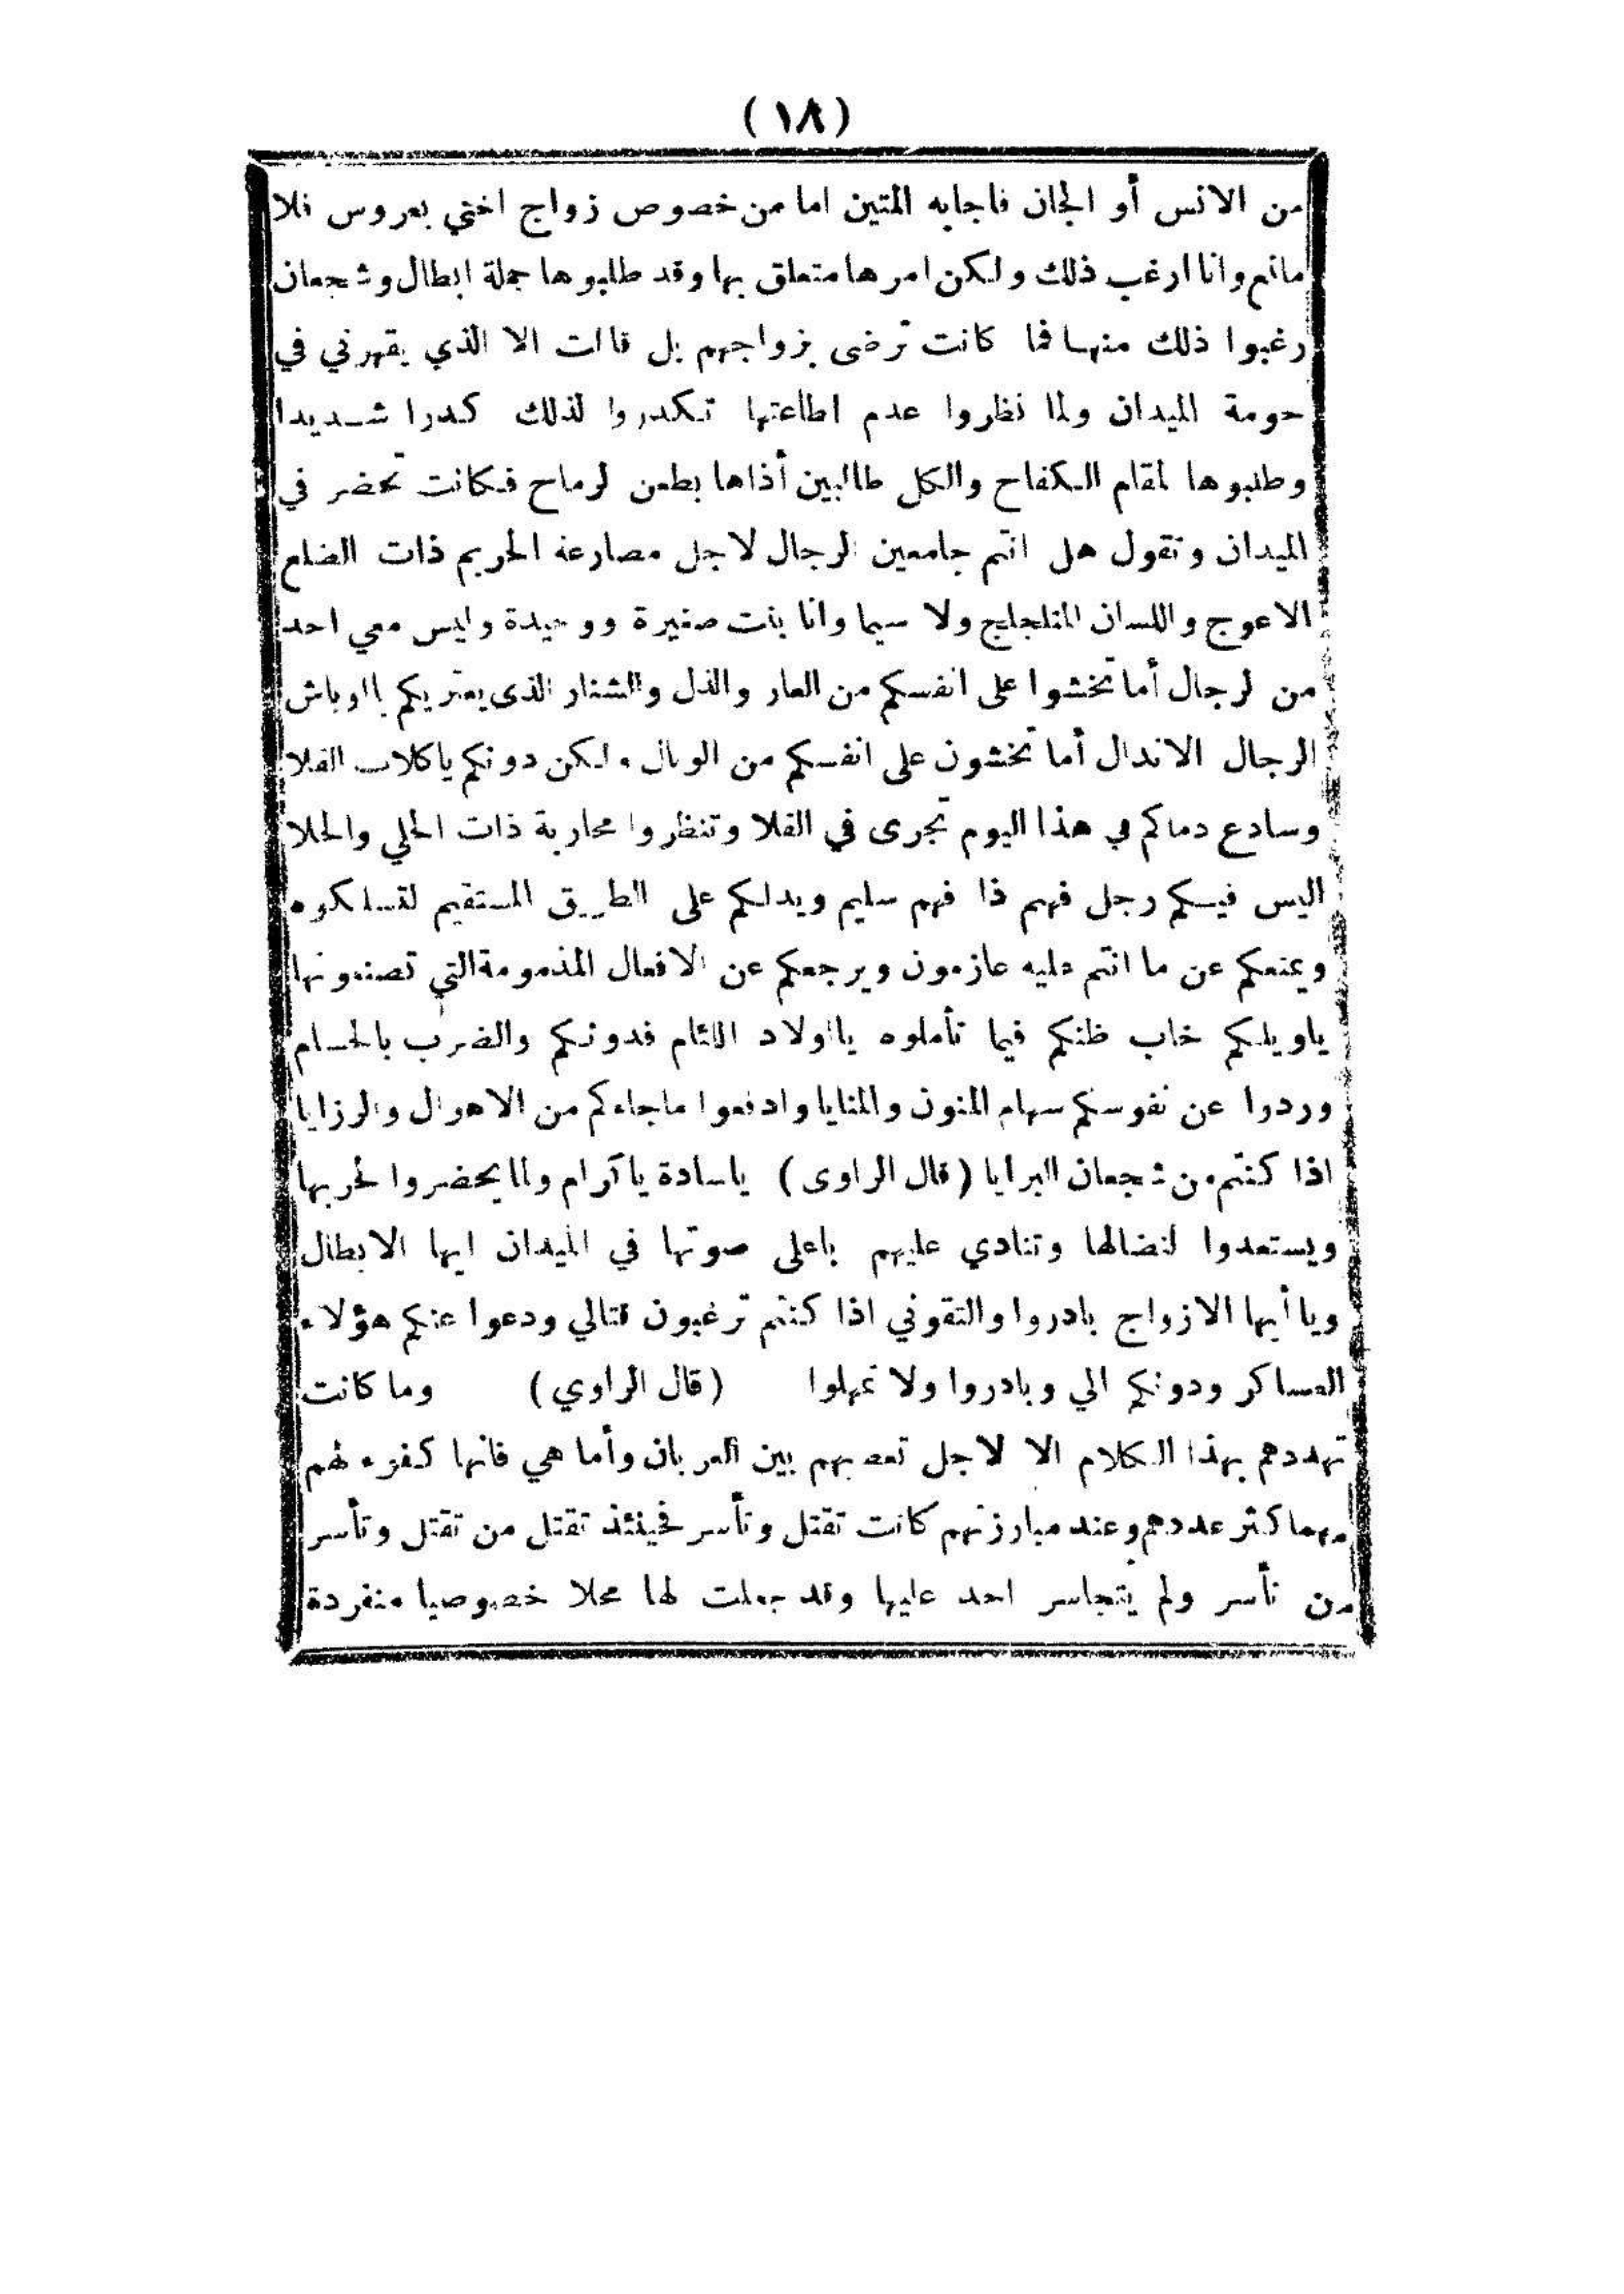 (١٨)
من الانس أو الجان فاجابه المتين اما من خصوص زواج اختي بعروس فلا
مانع وانا ارغب ذلك ولكن امرها متعلق بها وقد طلبوها جملة ابطال وشجعان
رغبوا ذلك منها فما كانت ترضى بزواجهم بل قالت الا الذي يقهرني في
حومة الميدان ولما نظروا عدم اطاعتها تكدروا لذلك كدرا شديدا
وطلبوها لمقام الكفاح والكل طالبين أذاها بطعن الرماح فكانت تحضر في
الميدان وتقول هل انتم جامعين الرجال لاجل مصارعة الحريم ذات الضلع
الاعوج واللسان المتلجلج ولا سيما وانا بنت صغيرة ووحيدة وليس معي احد
من الرجال أما تخشوا على انفسكم من العار والذل والشنار الذى يعتريكم يا اوباش
الرجال الاندال أما تخشون على انفسكم من الوبال ولكن دونكم ياكلاب الفلا
وسادع دماكم في هذا اليوم تجرى في الفلا وتنظروا محاربة ذات الحلي والحلا
اليس فيكم رجل فهيم ذا فهم سليم ويدلكم على الطريق المستقيم لتسلكوه
ويمنعكم عن ما انتم عليه عازمون ويرجعكم عن الافعال المذمومة التي تصنعونها
ياويلكم خاب ظنكم فيما تأملوه يا اولاد اللئام فدونكم والضرب بالحسام
وردوا عن نفوسكم سهام المنون والمنايا وادفعوا ماجاءكم من الاهوال والرزايا
اذا كنتم من شجعان البرايا (قال الراوى) ياسادة ياكرام ولما يحضروا لحربها
ويستعدوا لنضالها وتنادي عليهم باعلى صوتها في الميدان ايها الابطال
ويا أيها الازواج بادروا والتقوني اذا كنتم ترغبون قتالي ودعوا عنكم هؤلاء
العساكر ودونكم الي وبادروا ولا تمهلوا (قال الراوي) وما كانت
تهددهم بهذا الكلام الا لاجل تعصبهم بين العربان وأما هي فانها كفوء لهم
مهما كثر عددهم وعند مبارزتهم كانت تقتل وتأسر فحينئذ تقتل من تقتل وتأسر
من تأسر ولم يتجاسر احد عليها وقد جعلت لها محلا خصوصيا منفردة